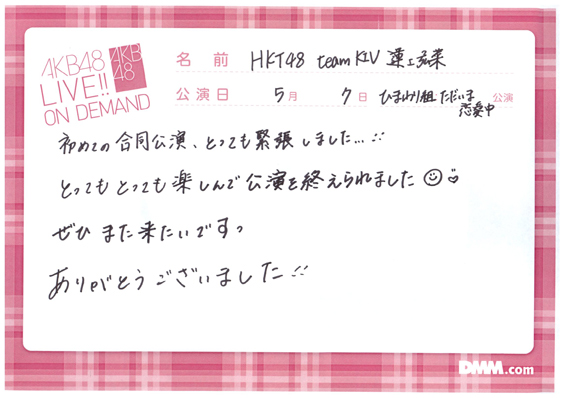 AKB48
LIVE!!
ON DEMAND
AKB
48
名前 HKT48 teamKIV
公演日 5月 7日 ひまわり組 ただいま 恋愛中 公演
初めての合同公演、とっても緊張しました…!!
とってもとっても楽しんで公演を終えられました
ぜひまた来たいですっ
ありがとうございました!!
DMM.com